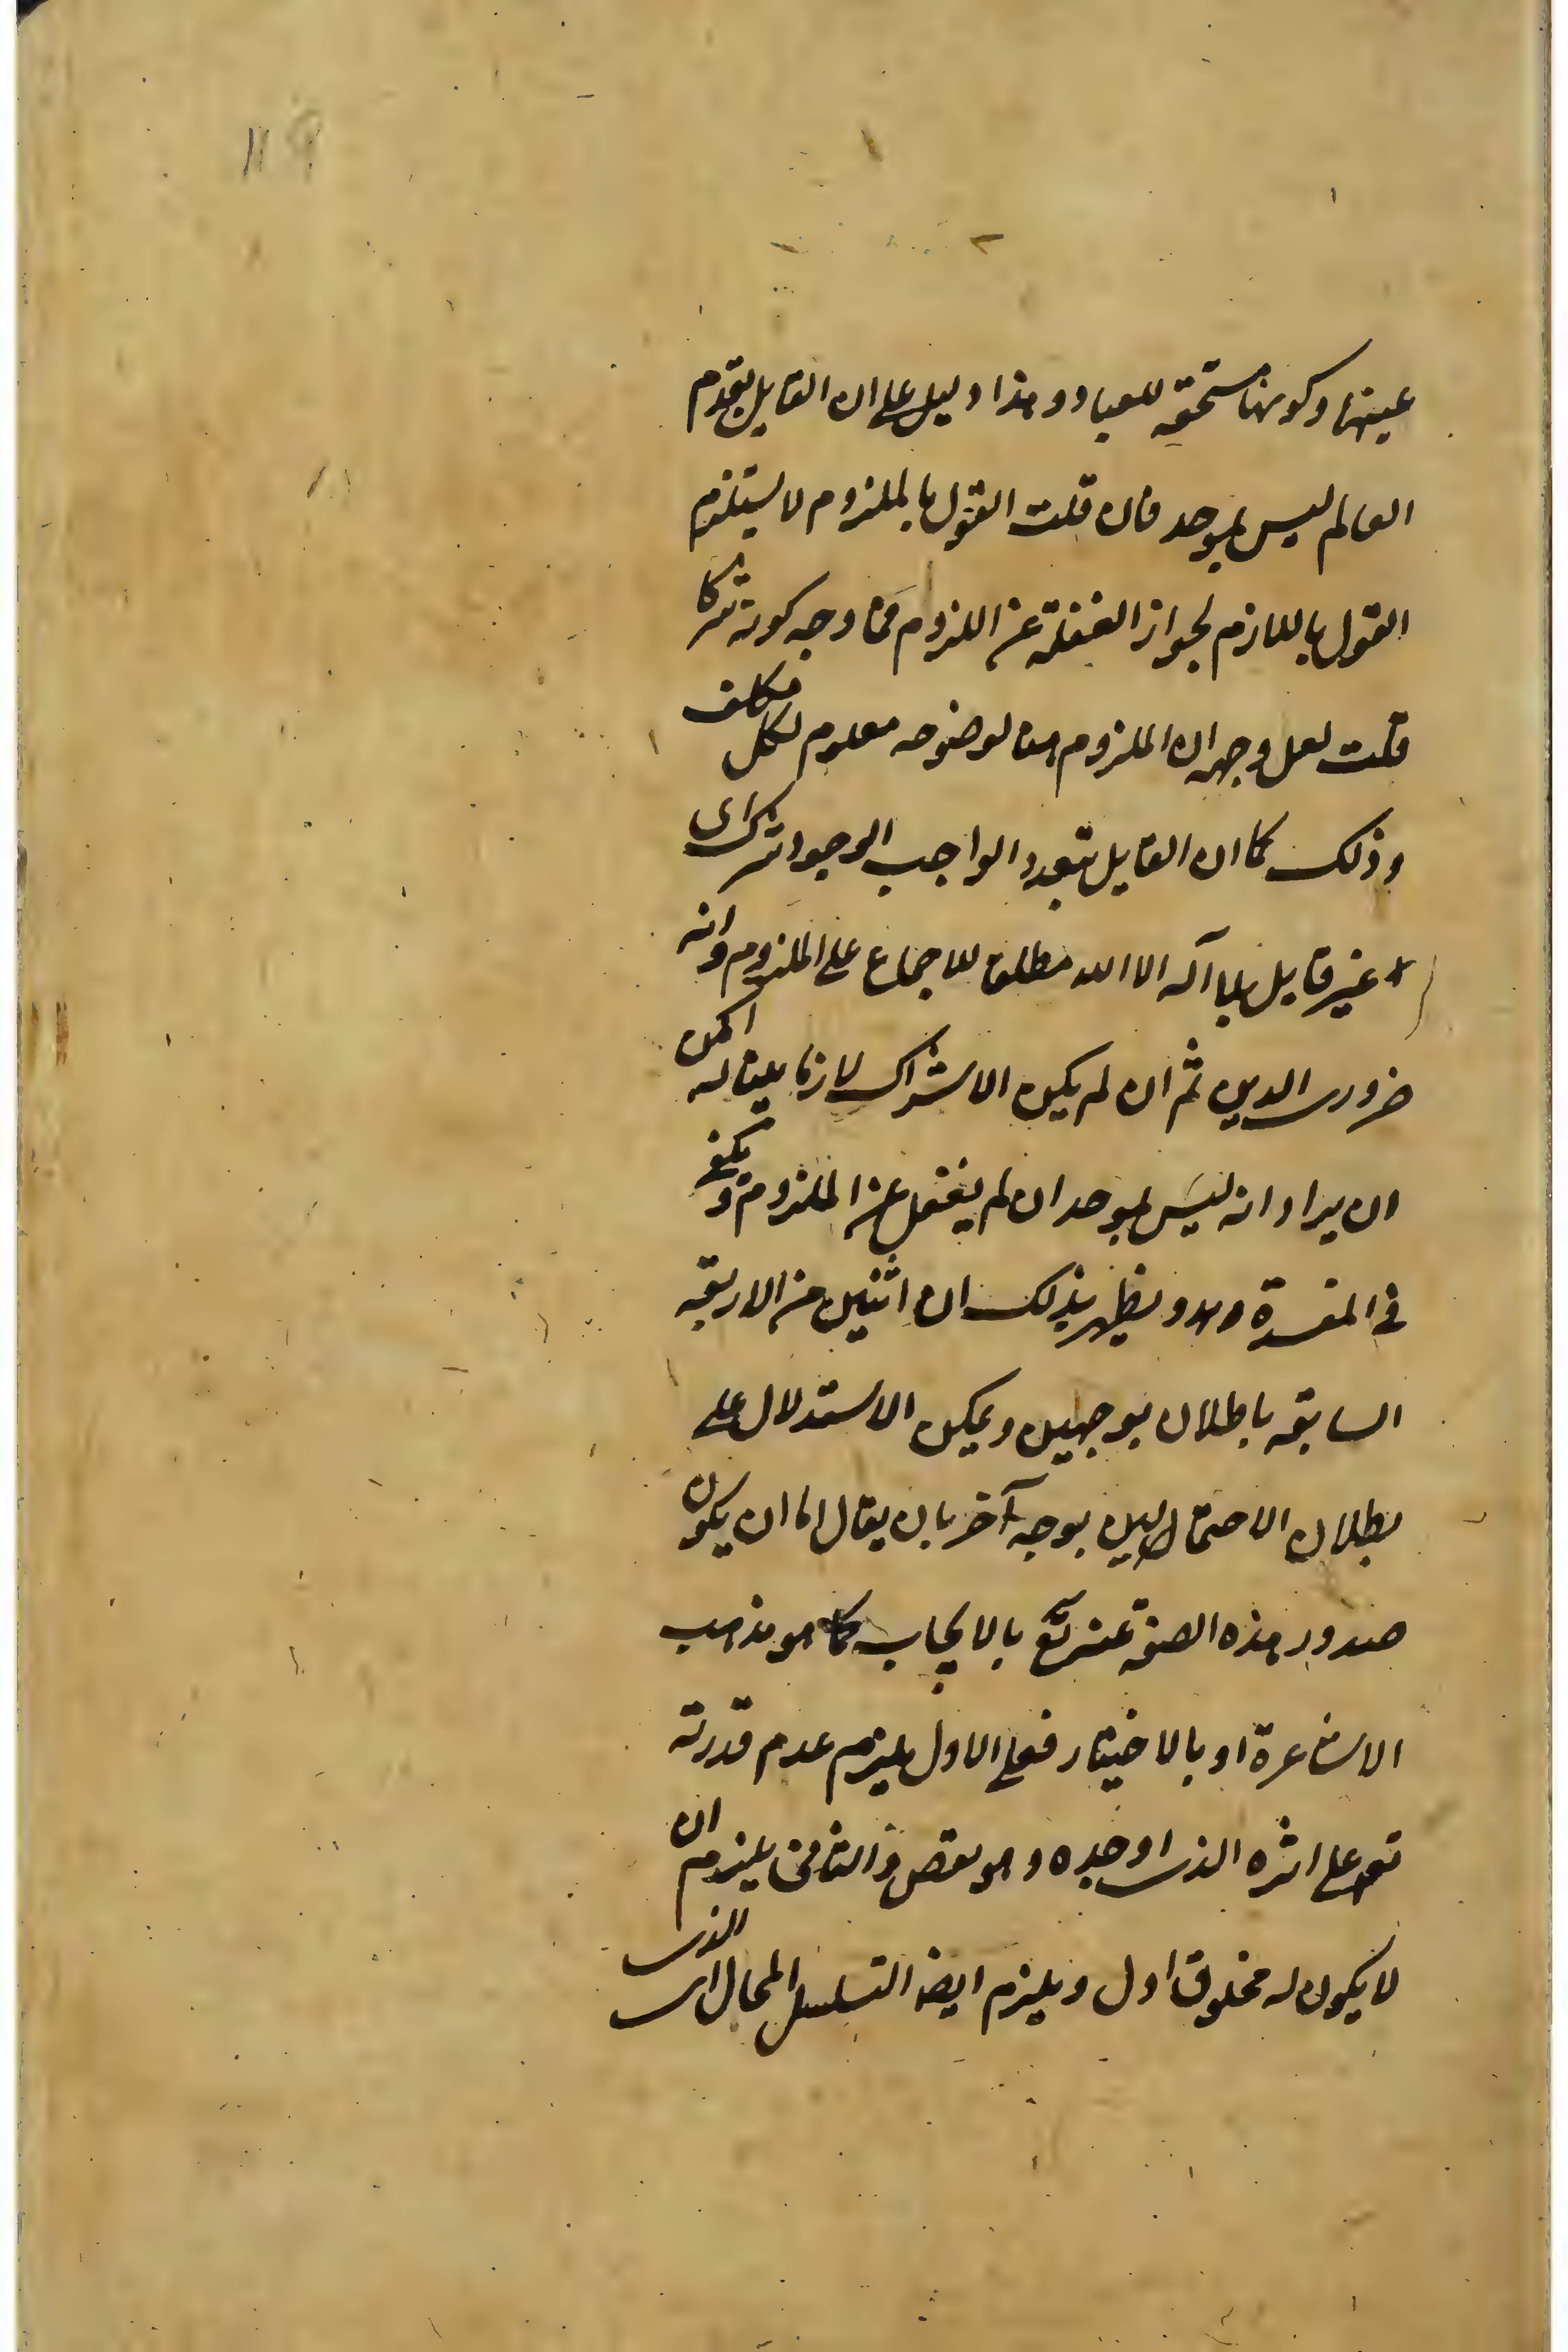 عينها وكونها مستحقه للعباد وهذا دليل على ان القايل بقدم
العالم ليس بموحد فان قلت القول بالملزوم لا يستلزم
القول باللازم لجواز الغفلة عن اللزوم فما وجه كونه شركا
قلت لعل وجهه ان الملزوم هنا لوضوحه معلوم لكل مكلف
وذلك كما ان القايل بتعدد الواجب الوجود مشرك اى
غير قايل بلا آله الا الله مطلقا للاجماع على الملزوم وانه
ضرورى الدين ثم ان لم يكن الاشتراك لازما بينا له امكن
ان يراد انه ليس بموحد ان لم يغفل عن الملزوم ويكفى
فى المفسدة ويظهر بذلك ان اثنين من الاربعه
السابقه باطلان بوجهين ويمكن الاستدلال على
بطلان الاحتمالين بوجه آخر بان يقال اما ان يكون
صدور هذه الصفة عنه تع بالايجاب كما هو مذهب
الاشاعرة او بالاختيار فعلى الاول يلزم عدم قدرته
تع على اثره الذى اوجده وهو نقص والثانى يلزم ان
لا يكون له مخلوق اول ويلزم ايضا التسلسل المحال اى الذى